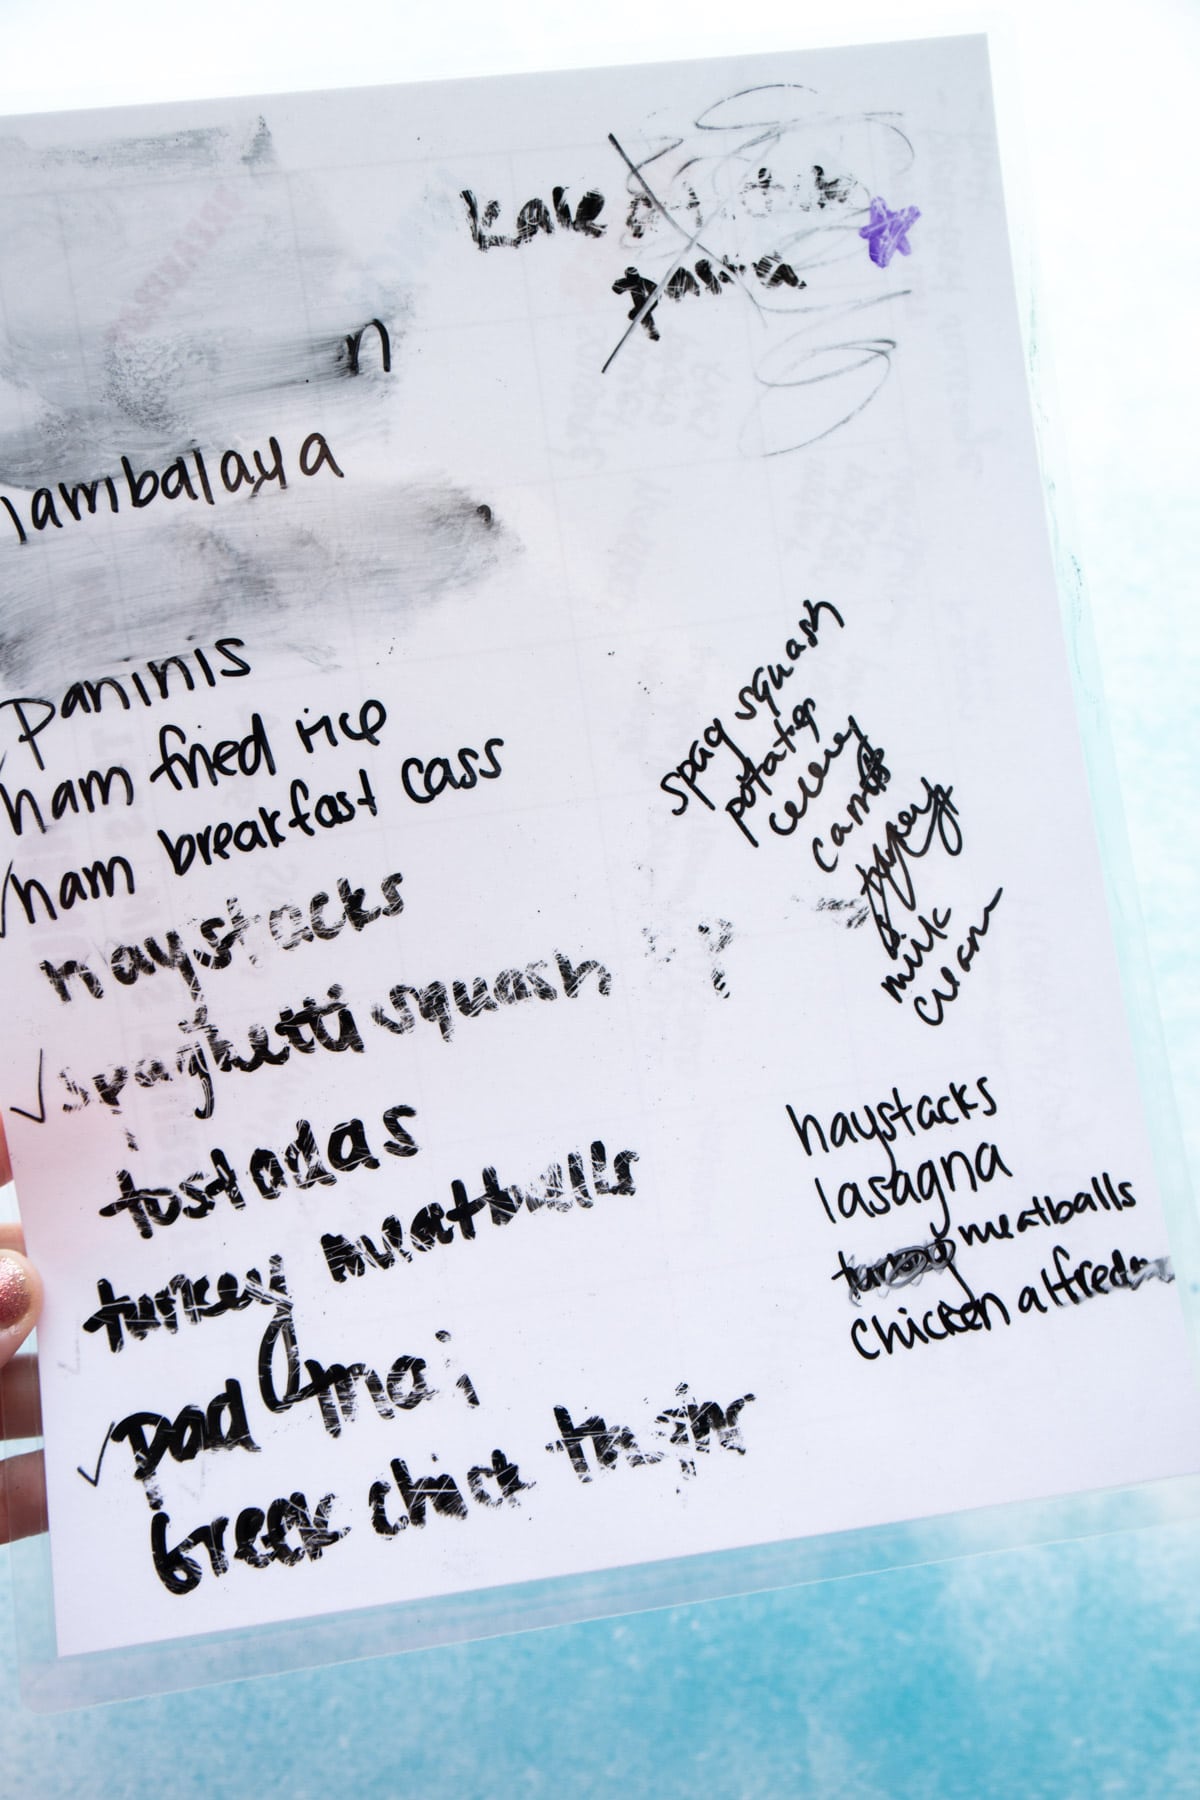 kale
pasta
n
jambalaya
paninis
ham fried rice
ham breakfast cass
haystacks
spaghetti squash
tostadas
turkey meatballs
pad thai
Greek chick
spag squash
potatoes
celery
carrots
milk
cream
haystacks
lasagna
turkey meatballs
chicken alfredo